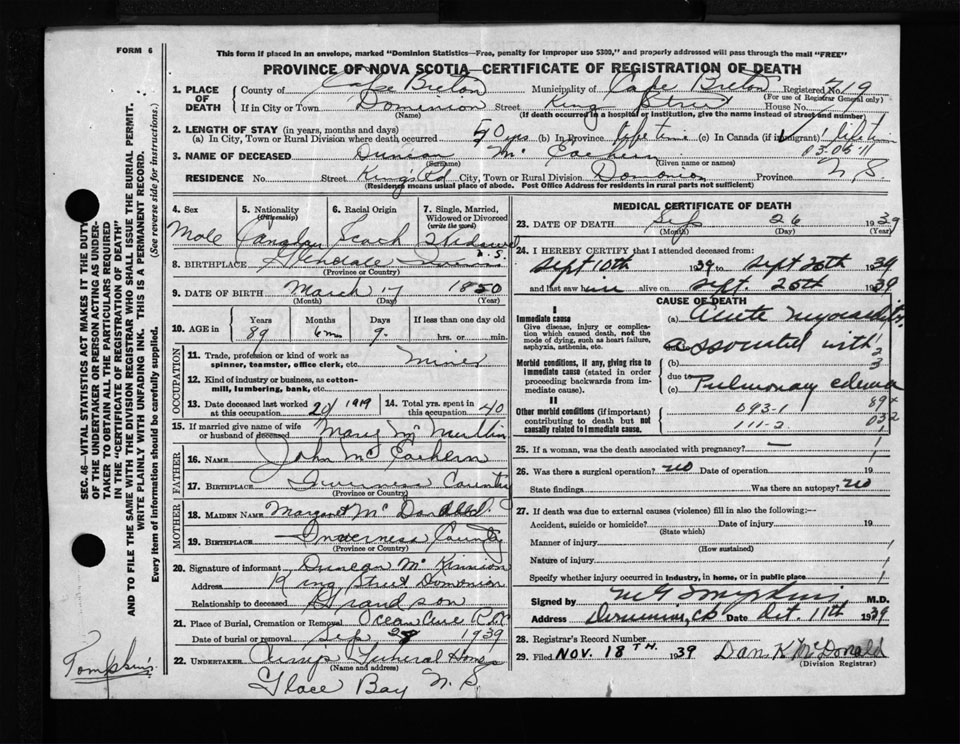 FORM 6
This form if placed in an envelope, marked "Dominion Statistics—Free, penalty for improper use $300," and properly addressed will pass through the mail "FREE"
PROVINCE OF NOVA SCOTIA—CERTIFICATE OF REGISTRATION OF DEATH
1. PLACE OF DEATH
County of Cape Breton Municipality of Cape Breton Registered No. 719
(For use of Registrar General only)
If in City or Town Dominion Street King Street House No.
(Name) (If death occurred in a hospital or institution, give the name instead of street and number)
2. LENGTH OF STAY (in years, months and days)
(a) In City, Town or Rural Division where death occurred 50 yrs (b) In Province life time (c) In Canada (if immigrant) life time
03.05.11
3. NAME OF DECEASED Duncan Mc Eachern
(Surname) (Given name or names)
RESIDENCE No. Street King Rd City, Town or Rural Division Dominion Province N.S.
(Residence means usual place of abode. Post Office Address for residents in rural parts not sufficient)
4. Sex Male
5. Nationality (Citizenship) Canadian
6. Racial Origin Scotch
7. Single, Married, Widowed or Divorced (write the word) Widowed
8. BIRTHPLACE Glendale N.S.
(Province or Country)
9. DATE OF BIRTH March 17 1850
(Month) (Day) (Year)
10. AGE in Years Months Days If less than one day old
89 6m 9. hrs. or min.
OCCUPATION
11. Trade, profession or kind of work as spinner, teamster, office clerk, etc. miner
12. Kind of industry or business, as cotton-mill, lumbering, bank, etc.
13. Date deceased last worked at this occupation 20/1919
14. Total yrs. spent in this occupation 40
15. If married give name of wife or husband of deceased Mary Mc
FATHER
16. NAME John Mc Eachern
17. BIRTHPLACE Inverness County
(Province or Country)
MOTHER
18. MAIDEN NAME Margaret Mc Donald
19. BIRTHPLACE Inverness County
(Province or Country)
20. Signature of informant Duncan Mc Kinnon
Address King Street Dominion
Relationship to deceased Grandson
21. Place of Burial, Cremation or Removal
Date of burial or removal Sep 28 1939
22. UNDERTAKER Funeral Home
(Name and address)
Glace Bay N.S
MEDICAL CERTIFICATE OF DEATH
23. DATE OF DEATH Sep 26 1939
(Month) (Day) (Year)
24. I HEREBY CERTIFY that I attended deceased from:
Sept 10th 1939 to Sept 26th 1939
and last saw him alive on Sept. 25th 1939
CAUSE OF DEATH
I
Immediate cause
Give disease, injury or complication which caused death, not the mode of dying, such as heart failure, asphyxia, asthenia, etc.
(a) Acute myocarditis
associated with
Morbid conditions, if any, giving rise to immediate cause (stated in order proceeding backwards from immediate cause).
(b)
due to
(c) Pulmonary edema
II
Other morbid conditions (if important) contributing to death but not causally related to immediate cause.
093-1
111-2
25. If a woman, was the death associated with pregnancy? —
26. Was there a surgical operation? no Date of operation 19
State findings Was there an autopsy? no
27. If death was due to external causes (violence) fill in also the following:—
Accident, suicide or homicide? Date of injury 19
(State which)
Manner of injury
(How sustained)
Nature of injury
Specify whether injury occurred in industry, in home, or in public place
Signed by M G Tompkins M.D.
Address Dominion, C.B. Date Oct. 11th 1939
28. Registrar's Record Number
29. Filed NOV. 18TH. 1939 Dan K McDonald
(Division Registrar)
SEC. 46—VITAL STATISTICS ACT MAKES IT THE DUTY
OF THE UNDERTAKER OR PERSON ACTING AS UNDERTAKER TO OBTAIN ALL THE PARTICULARS REQUIRED
IN THE "CERTIFICATE OF REGISTRATION OF DEATH"
AND TO FILE THE SAME WITH THE DIVISION REGISTRAR WHO SHALL ISSUE THE BURIAL PERMIT.
WRITE PLAINLY WITH UNFADING INK. THIS IS A PERMANENT RECORD.
Every item of Information should be carefully supplied. (See reverse side for instructions.)
Tompkins